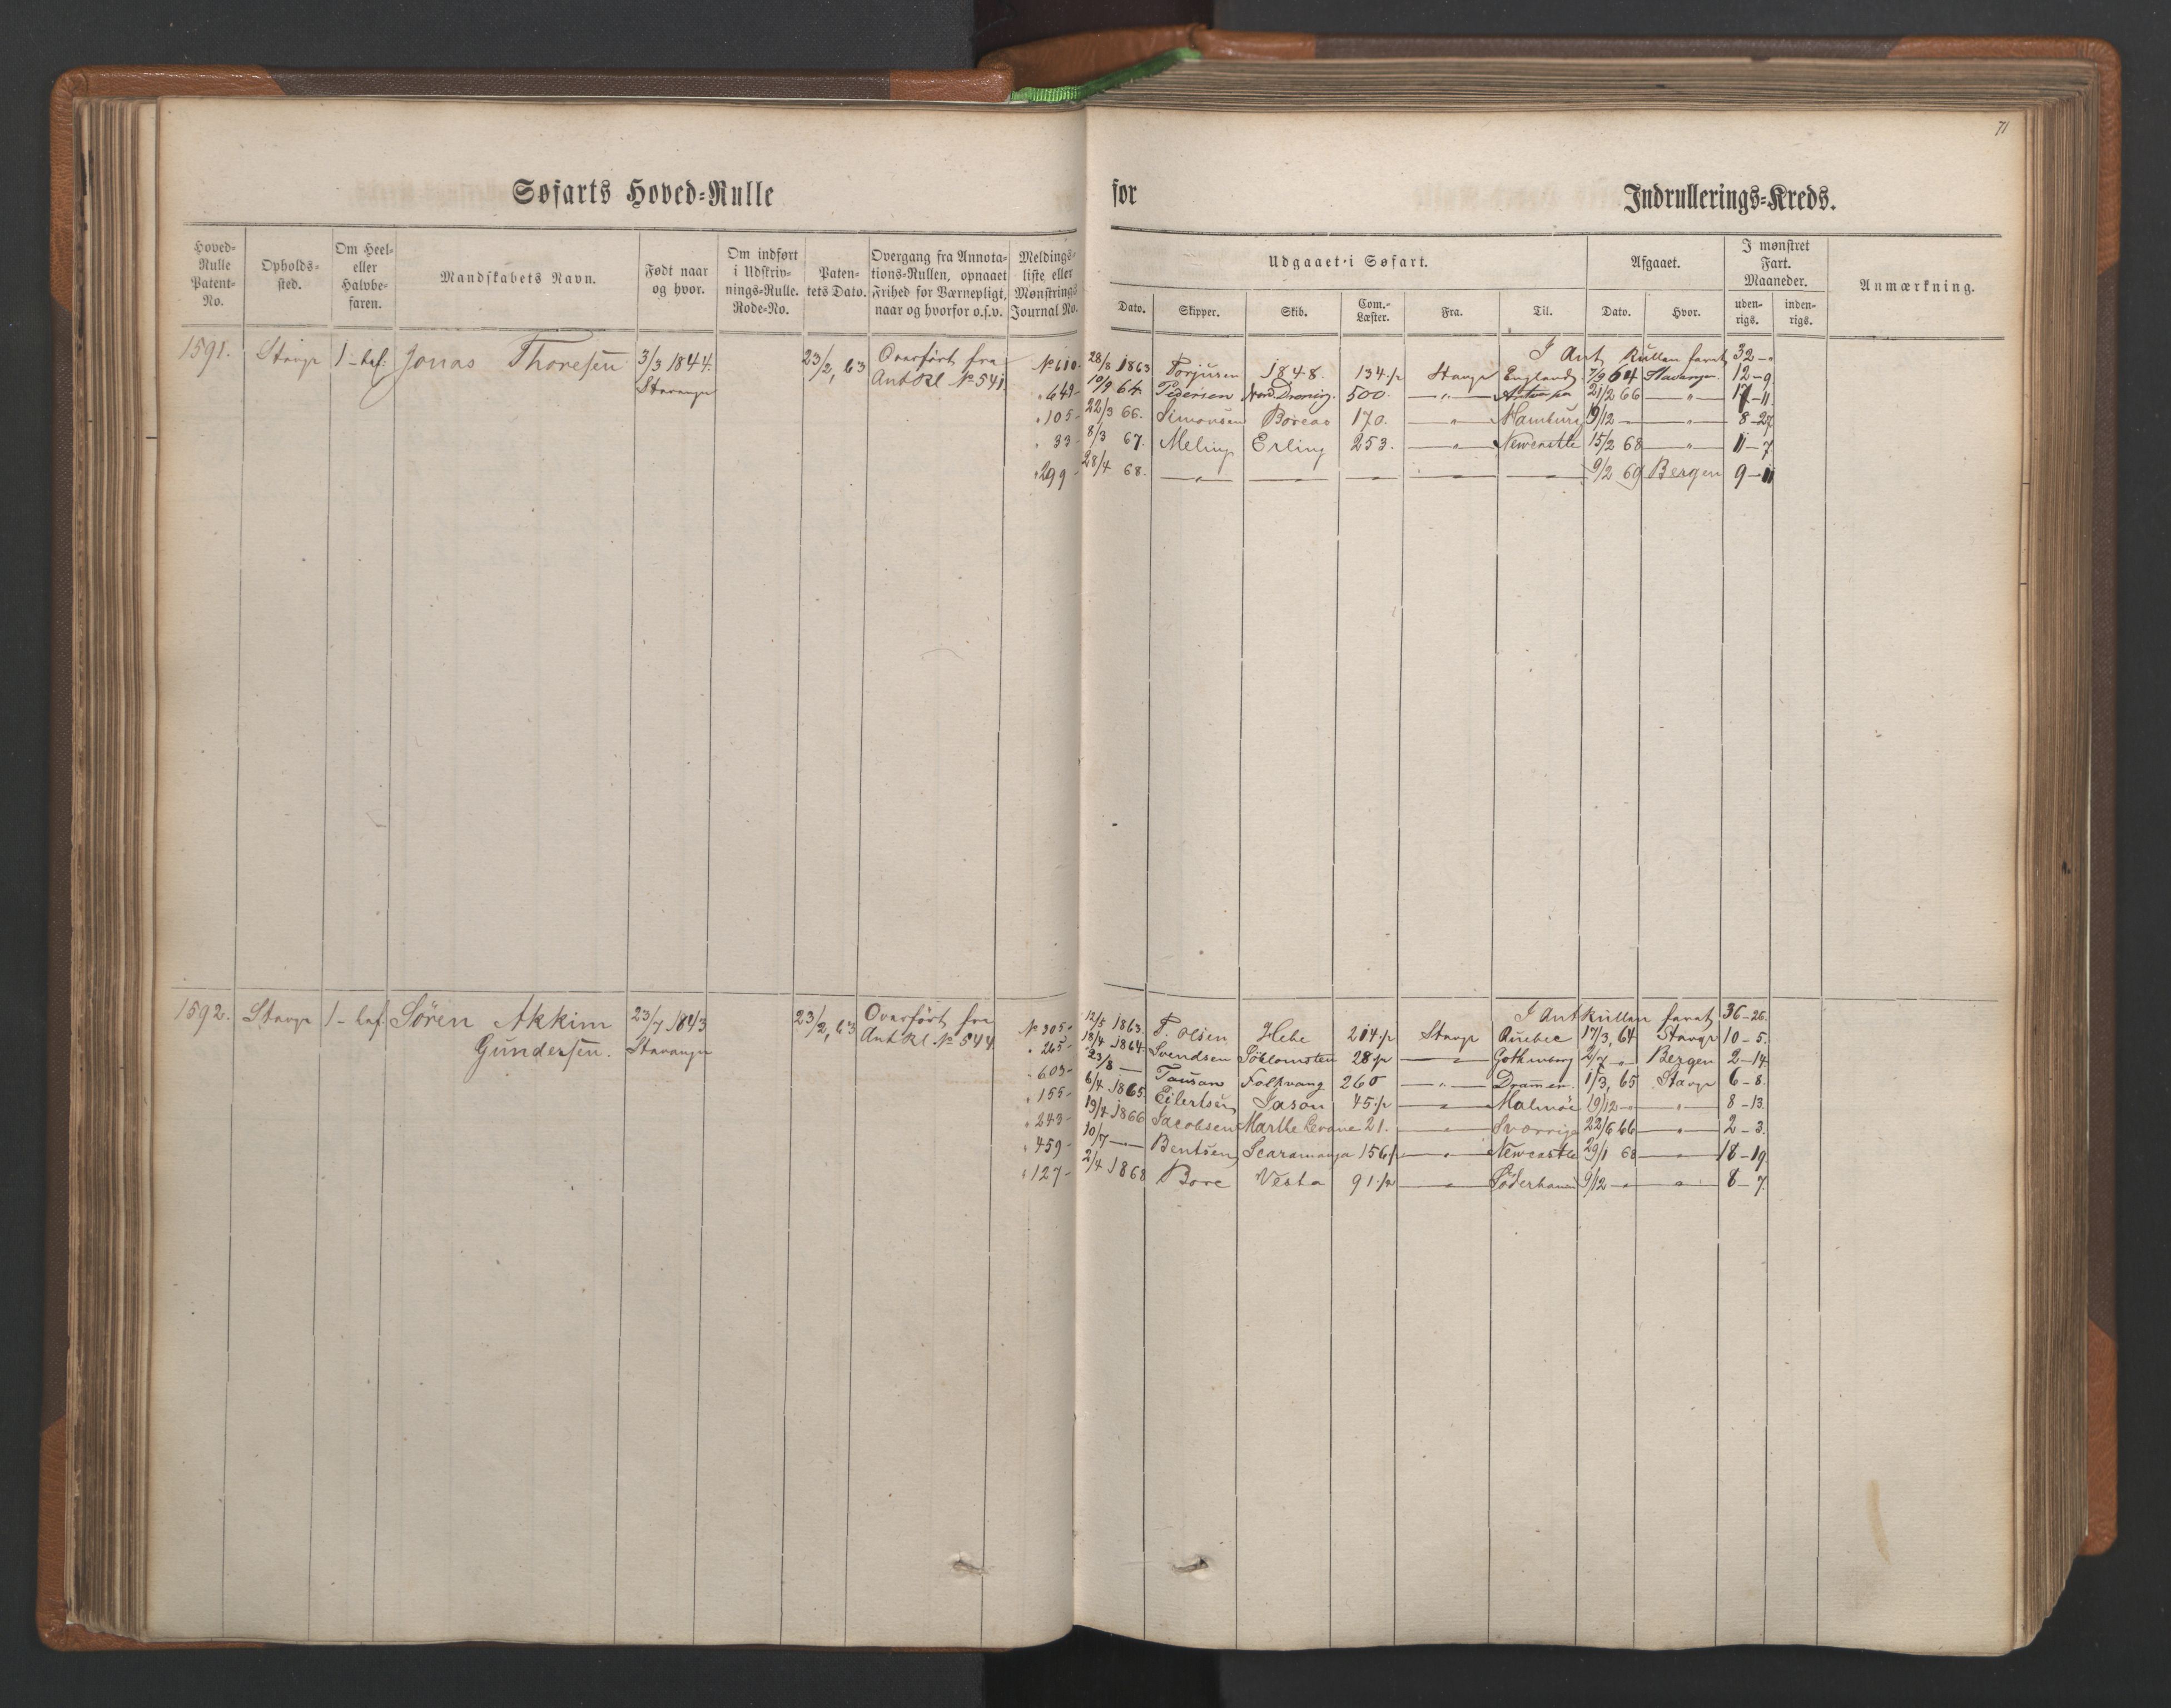 71
Søfarts Hoved-Rulle for Indrullerings-Kreds.
Hoved-Rulle Patent-No. Opholds-sted. Om Heel- eller Halvbe-faren. Mandskabets Navn. Født naar og hvor. Om indført i Udskriv-nings-Rulle. Rode-No. Paten-tets Dato. Overgang fra Annota-tions-Rullen, opnaaet Frihed for Værnepligt, naar og hvorfor o.s.v. Meldings-liste eller Mønstrings Journal No.
Udgaaet i Søfart. Afgaaet. I mønstret Fart. Maaneder. Anmærkning.
Dato. Skipper. Skib. Com.-Læster. Fra. Til. Dato. Hvor. uden-rigs. inden-rigs.
1591. Stavgr 1-bef. Jonas Thoresen 3/3 1844. Stavanger 23/2, 63 Overført fra Ant Rl No 541
I Ant Rullen faret 32-"
No 610. 28/8 1863 Torjusen 1848. 134 1/2 Stavgr England 7/9 64 Stavanger 12-9
" 649- 10/9 64 Pedersen Nord. Dronning. 500. —"— 21/2 66 —"— 17-11
" 105- 22/3 66. Simonsen Boreas 170. —"— Hamburg 19/12 — —"— 8-27
" 33- 8/3 67. Meling Erling 253. —"— Newcastle 15/2 68 —"— 11-7
" 299- 28/4 68. —"— — — — — 9/2 69 Bergen 9-11
1592. Stavgr 1-bef. Sören Akkim Gundersen. 23/7 1843 Stavanger 23/2, 63 Overført fra Ant Rl. No 544
I Ant Rullen faret 36-26.
No 305- 12/5 1863. T. Olsen Hebe 214 1/2 Stavgr Quebec 17/3, 64 Stavgr 10-5.
" 265- 18/4 1864. Svendsen Söblomsten 28 1/2 —"— Gothenborg 2/7 —"— Bergen 2-14.
" 603- 23/8 — Tousan Folkvang 260 —"— Drammen. 1/3, 65 Stavgr 6-8.
" 155- 6/4 1865. Eilertsen Jason 45 1/2 —"— Malmöe 19/12 —"— —"— 8-13.
" 243- 19/4 1866 Jacobsen Marthe 21. —"— Sverrige 22/6 66 —"— 2-3.
" 459- 10/7 — Bentsen Scaramanga 156 1/2 —"— Newcastle 29/1 68 —"— 18-19.
" 127- 2/4 1868 Bore Vesta 91 1/2 —"— Söderhamn 9/12 —"— —"— 8-7.